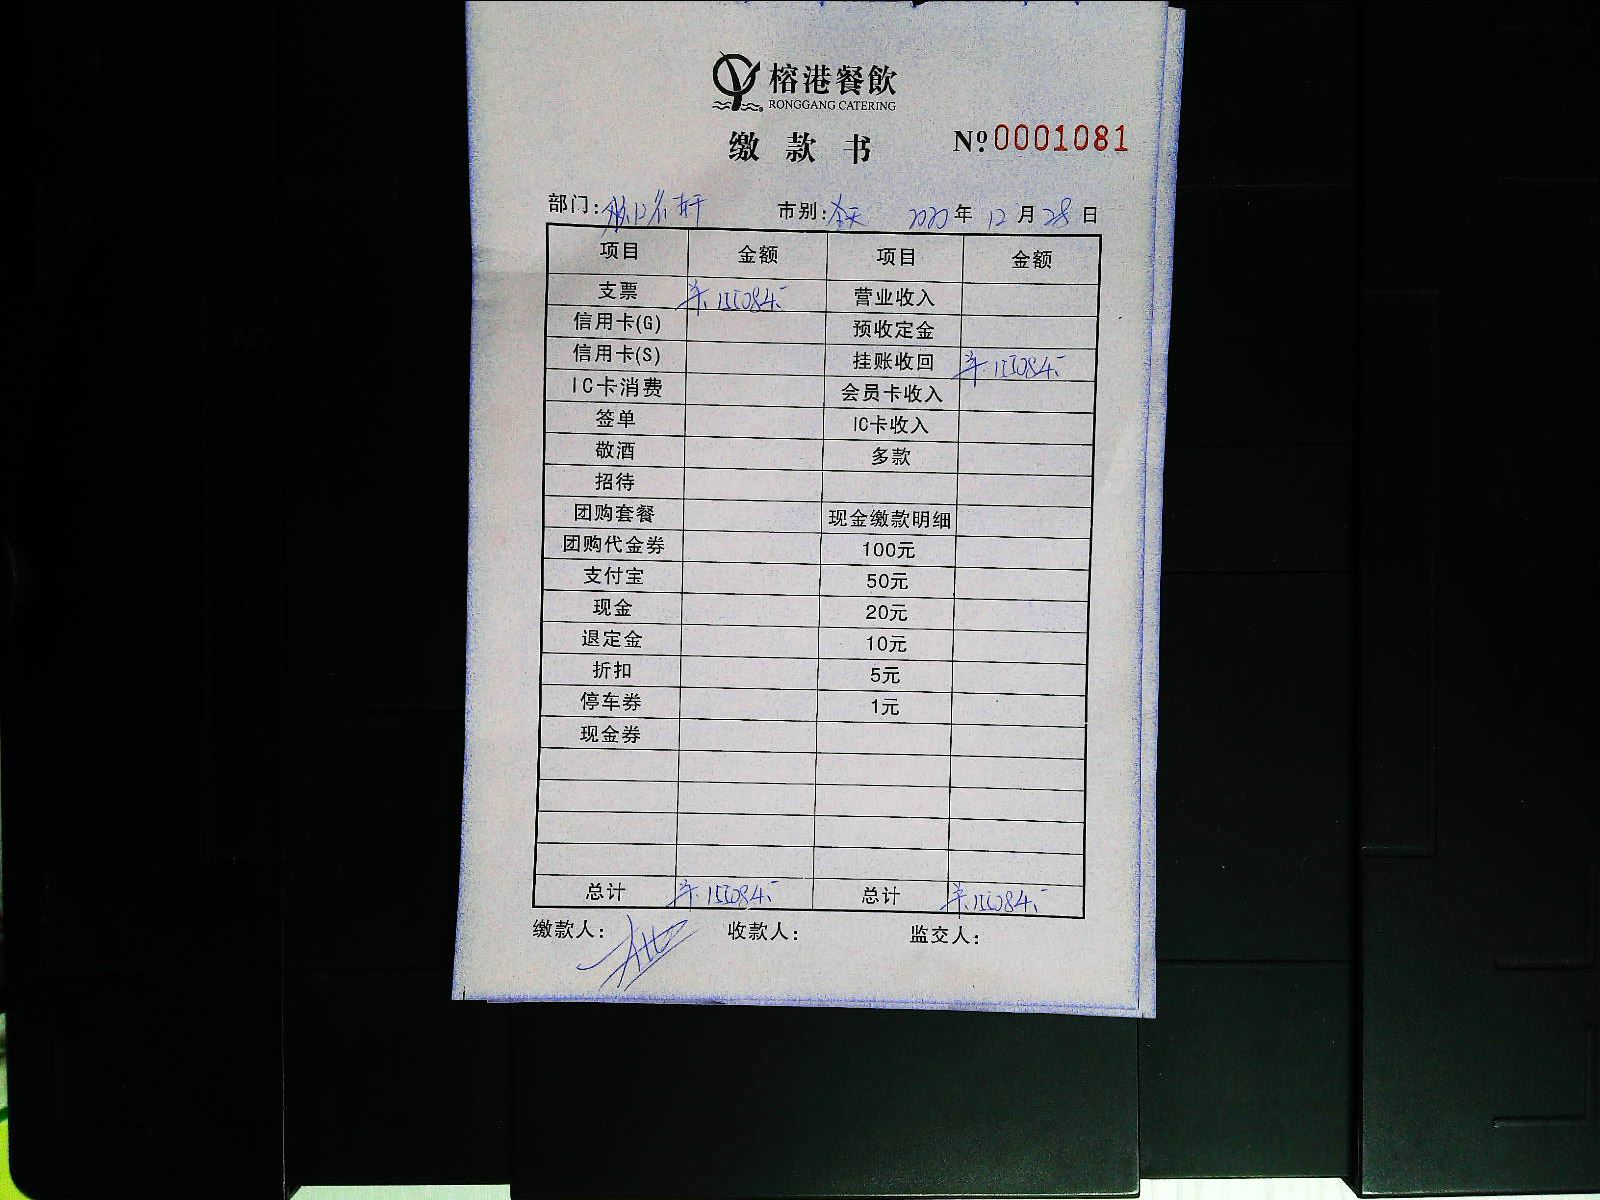 榕港餐飲
RONGGANG CATERING
缴款书 Nº 0001081
部门: 市别:全天 2020年12月28日
项目 金额 项目 金额
支票 155084.- 营业收入
信用卡(G) 预收定金
信用卡(S) 挂账收回 155084.-
IC卡消费 会员卡收入
签单 IC卡收入
敬酒 多款
招待
团购套餐 现金缴款明细
团购代金券 100元
支付宝 50元
现金 20元
退定金 10元
折扣 5元
停车券 1元
现金券
总计 155084.- 总计 155084.-
缴款人: 收款人: 监交人: